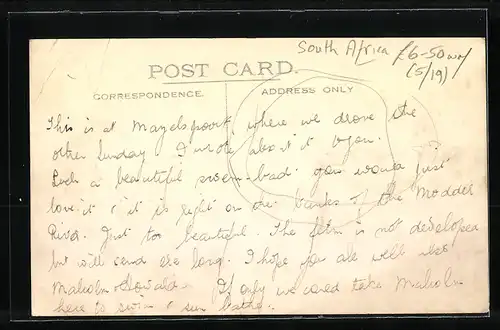 South Africa £6-50
(5/19)
POST CARD.
CORRESPONDENCE.
ADDRESS ONLY
This is at Mazelspoort where we drove the
other Sunday I wrote about it to you.
Such a beautiful swim-bad. you would just
love it & it is right on the banks of the Modder
River. Just too beautiful. The film is not developed
but will send ere long. I hope you are well also
Malcolm & Howard. If only we could take Malcolm
here to swim & sun bathe.